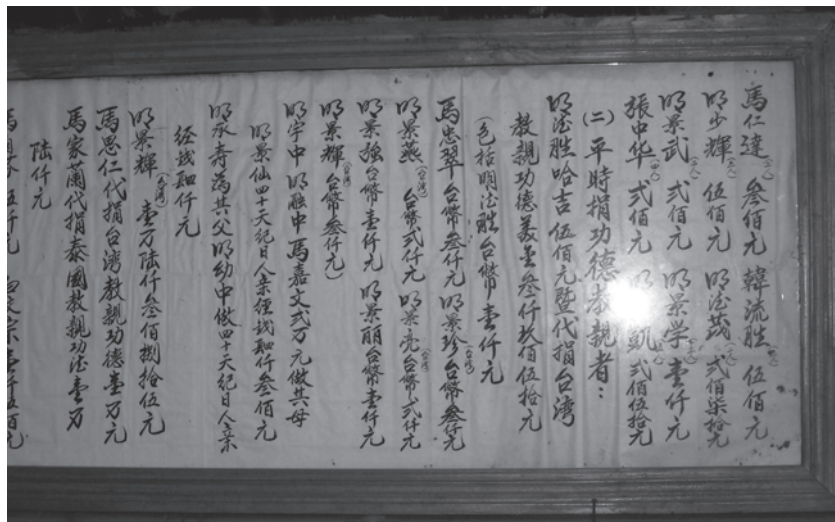 馬仁達 叁佰元 韓流胜 伍佰元
明少輝 伍佰元 明沼茂 弍佰柒拾元
明景武 弍佰元 明景学 壹仟元
張中华 弍佰元 凱 弍佰伍拾元
(二)平時捐功德教親者:
明沼胜哈吉 伍佰元暨代捐台湾
教親功德美壹叁仟玖佰伍拾元
(包括明沼胜台幣壹仟元
馬忠翠台幣叁仟元 明景珍(台湾)台幣叁仟元
明景燕(台湾)台幣弍仟元 明景亮台幣弍仟元
明景强台幣壹仟元 明景丽台幣壹仟元
明景輝(台湾)台幣叁仟元)
明宇中 明融中 馬嘉文弍万元做其母
明景仙四十天纪日人亲經钱肆仟叁佰元
明承寿為其父明幼中做四十天纪日人亲
经钱肆仟元
明景輝 壹万陆仟叁佰捌拾伍元
馬思仁代捐台湾教親功德壹万元
馬家蘭代捐泰國教親功德壹万
陆仟元